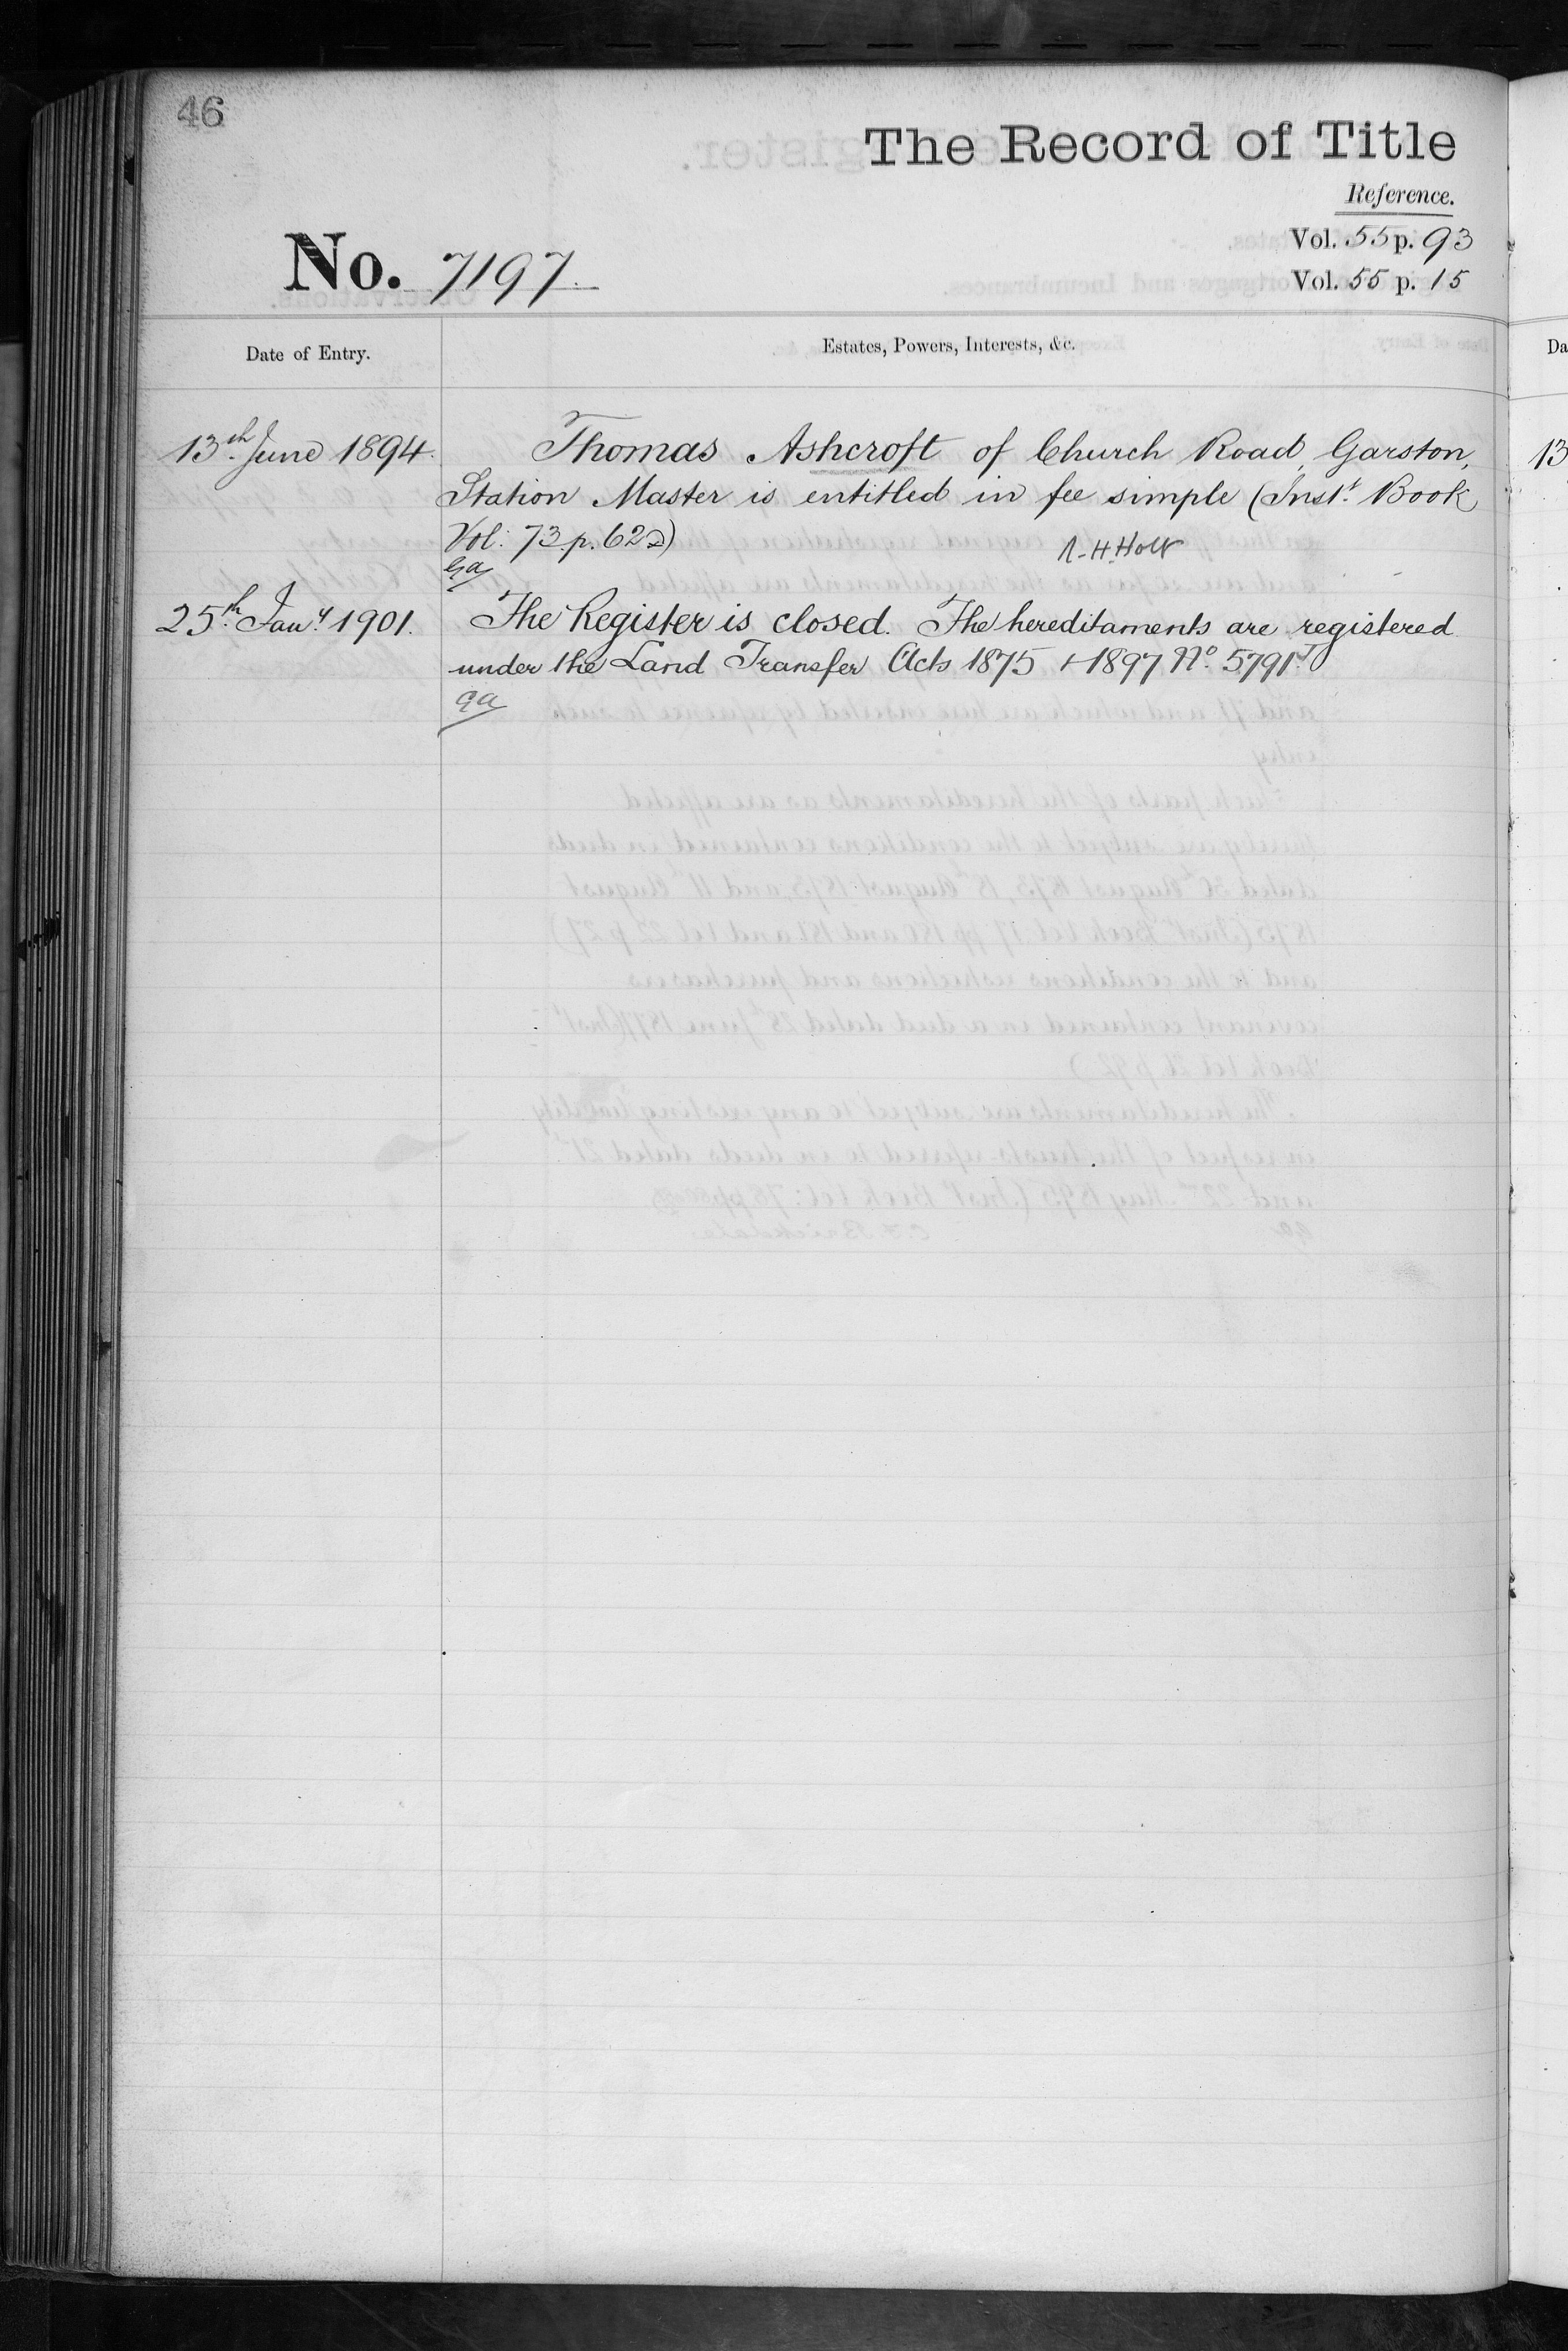 46
The Record of Title
Reference.
Vol. 55 p. 93
No. 7197.
Vol. 55 p. 15
Date of Entry.
Estates, Powers, Interests, &c.
Da
13th June 1894.
Thomas Ashcroft of Church Road, Garston,
13
Station Master is entitled in fee simple (Inst. Book
Vol: 73 p. 62)
Holt
Ga
25th Jany 1901.
The Register is closed. The hereditaments are registered
under the Land Transfer Acts 1875 + 1897 No. 5791
Ga